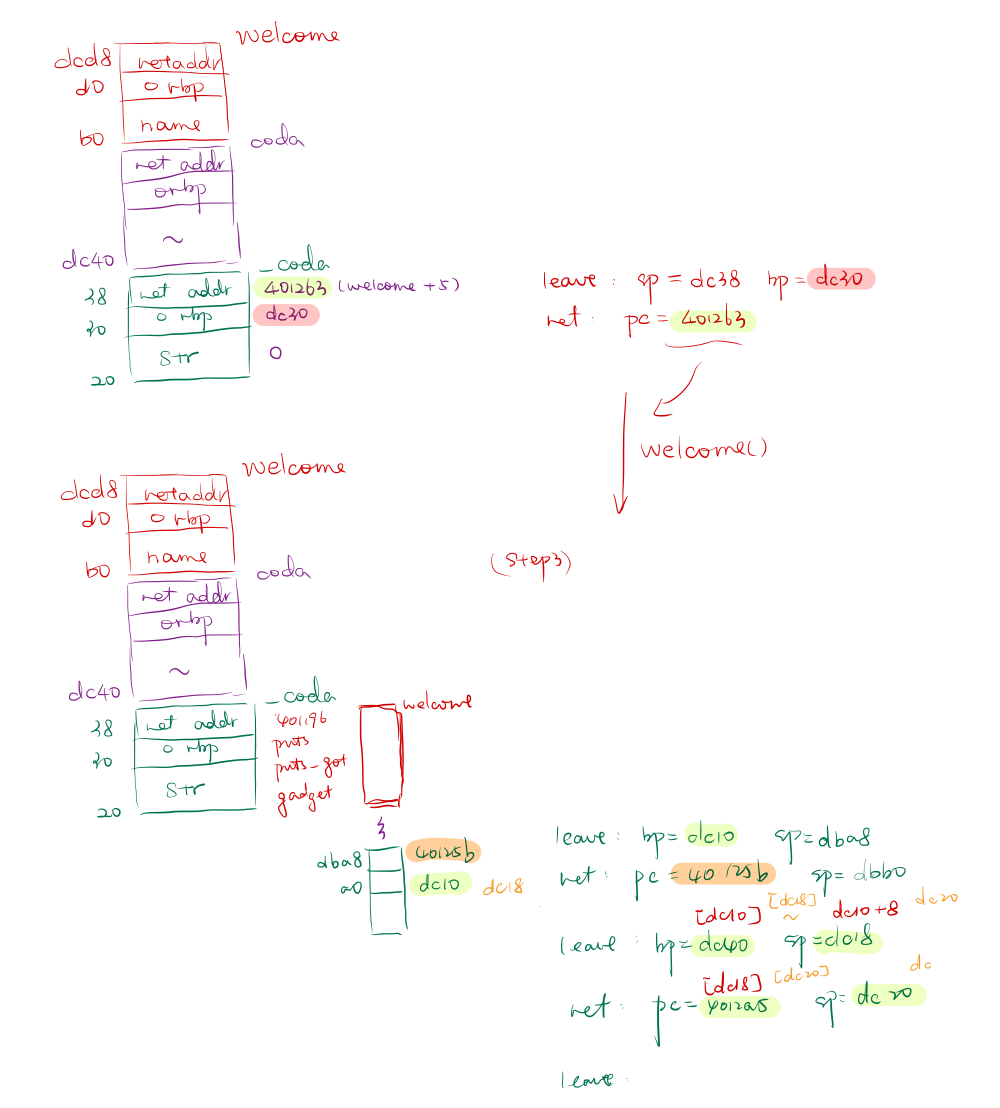 welcome
dcd8 retaddr
d0 o rbp
b0 name
coda
ret addr
orbp
~
dc40
_coda
38 ret addr 401263 (welcome +5)
30 o rbp dc30
str 0
20
leave: sp = dc38 bp = dc30
ret: pc = 401263
welcome()
welcome
dcd8 retaddr
d0 o rbp
b0 name
(step3)
coda
ret addr
orbp
~
dc40
_coda
38 ret addr 401196
30 o rbp puts
puts_got
str gadget
20
welcome
dba8 40125b
a0 dc10 dc18
leave: bp = dc10 sp = dba8
ret: pc = 40125b sp = dbb0
[dc10] [dc18] ~ dc10+8 dc20
leave: bp = dc40 sp = dc18
[dc18] [dc20] dc
ret: pc = 4012a5 sp = dc20
leave: